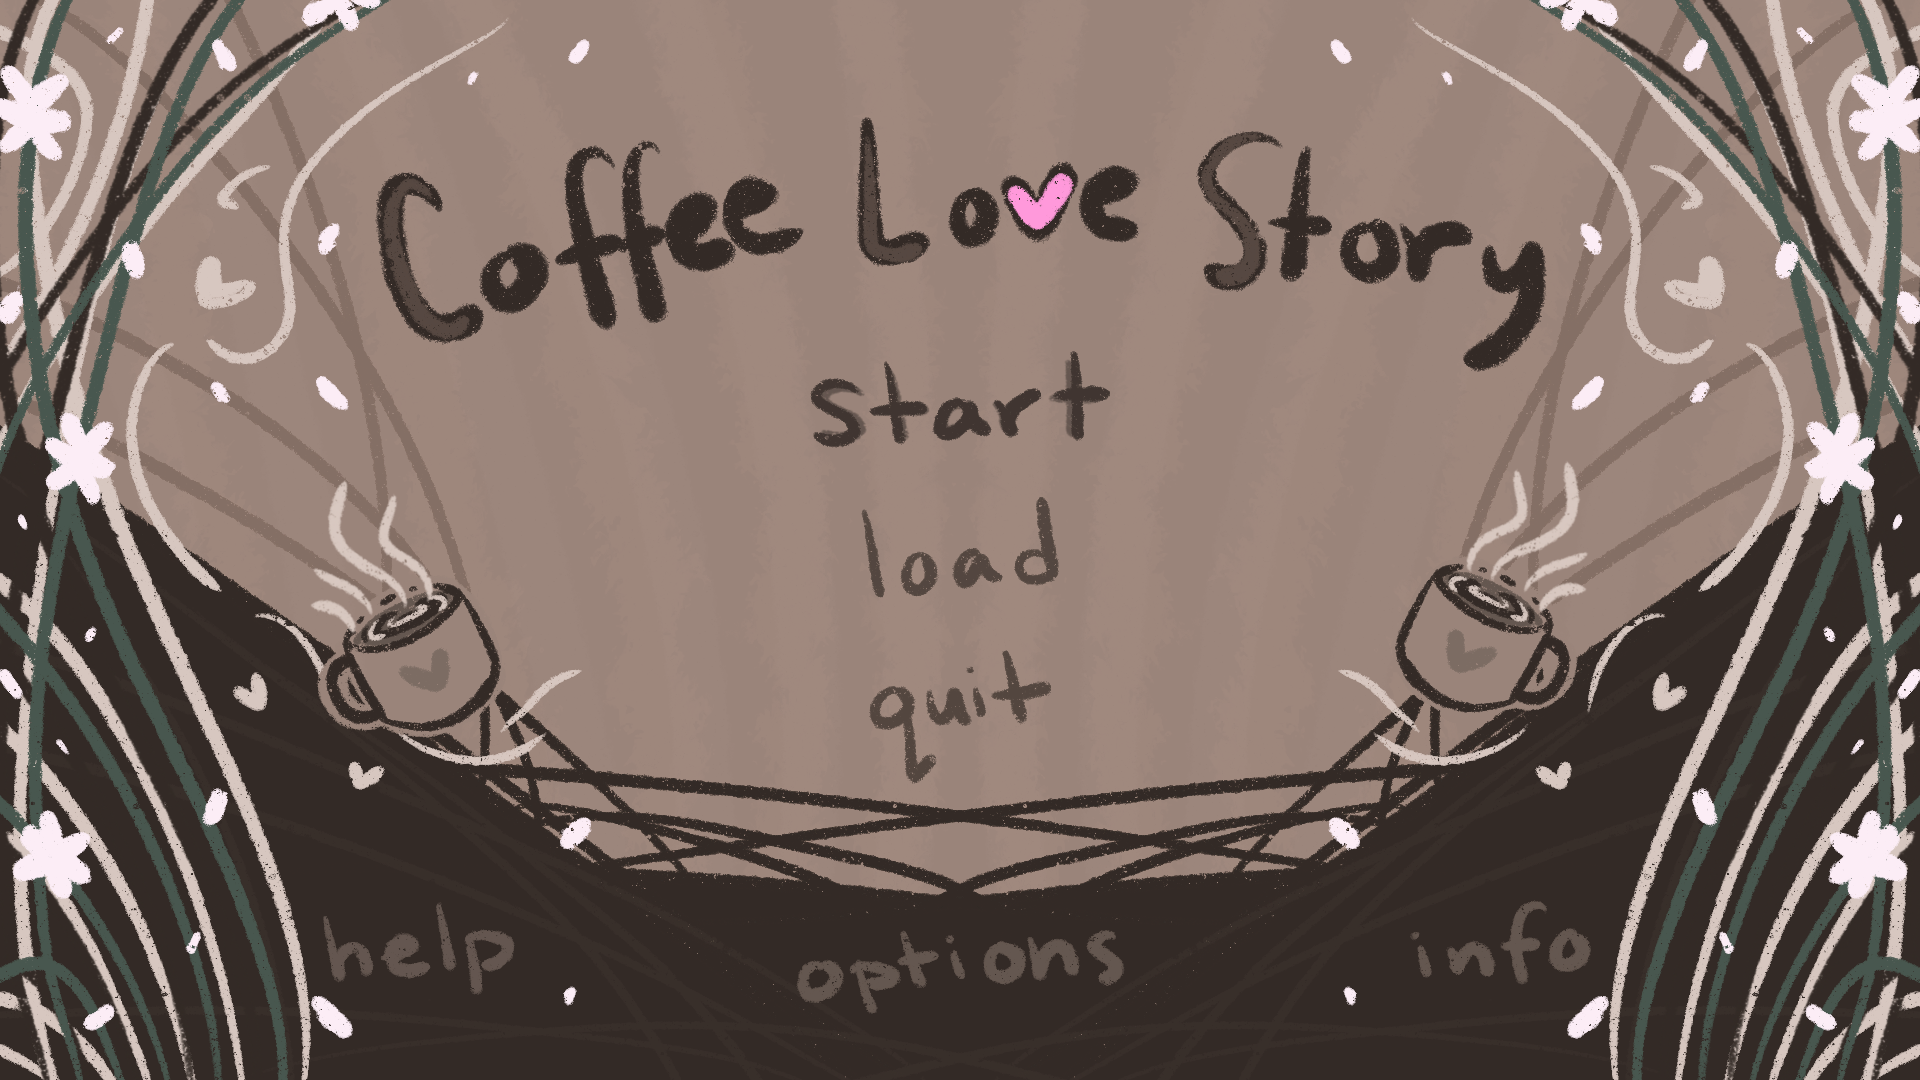 Coffee Love Story
start
load
quit
help options info